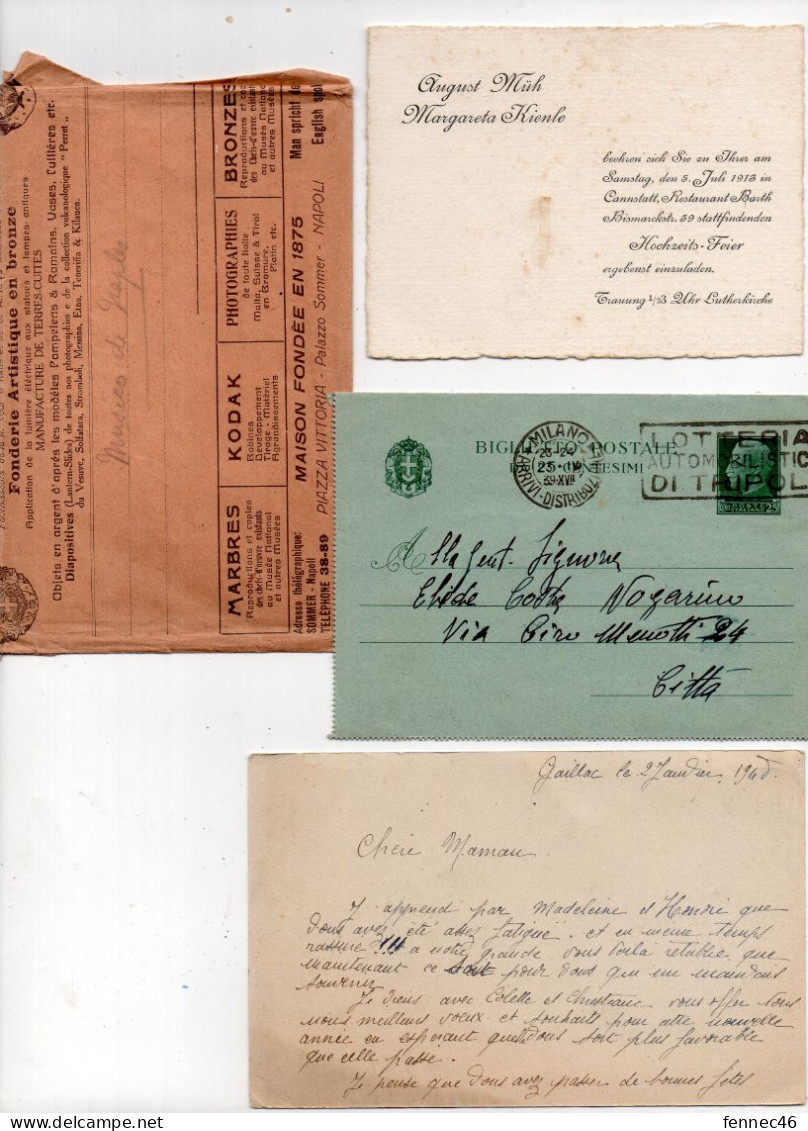 Fonderie Artistique en bronze
Application de la lumière électrique aux statues et lampes antiques
MANUFACTURE DE TERRES-CUITES
Objets en argent d'après les modèles Pompeiens & Romains, Vases, Cuillères etc.
Diapositives (Lantern-Slides) de toutes nos photographies e de la collection vulcanologique " Perret "
du Vesuve, Solfatara, Stromboli, Messina, Etna, Teneriffa & Kilauea.
MARBRES
Reproductions et copies
des chefs-d'œuvre existants
au Musée National
et autres Musées
KODAK
Bobines
Developpement
Tirage - Matériel
Agrandissements
PHOTOGRAPHIES
de toute Italie
Malta, Suisse & Tirol
en Bromure,
Platin etc.
BRONZES
Reproductions et cop
des Chefs-d'œvre existants
au Musés National
et autres Musées
Adresse thélégraphique:
SOMMER - Napoli
TÉLÉPHONE 38-89
MAISON FONDÉE EN 1875
PIAZZA VITTORIA - Palazzo Sommer - NAPOLI
Man spricht de
English spol
August Müh
Margareta Kienle
beehren sich Sie zu Ihrer am
Samstag, den 5. Juli 1913 in
Cannstatt, Restaurant Barth
Bismarckstr. 39 stattfindenden
Hochzeits-Feier
ergebenst einzuladen.
Trauung 1/23 Uhr Lutherkirche
BIGLIETTO POSTALE
MILANO
23-24
25-IV
39-XVII
ARRIVI-DISTRIBUZ
LOTTERIA
AUTOMOBILISTIC
DI TRIPOL
Alla gent. Signora
Elide Costa Nogarino
Via Ciro Menotti 24
Città
Gaillac le 2 Janvier 194
Chère Maman
J apprend par Madeleine et Honoré que
vous avez été assez fatigué. et en meme temps
rassure a notre grande vous voila retablie, que
maintenant ce soit pour vous que un mauvais
souvenir
Je viens avec Colette et Christiane vous offer tous
nous meilleurs voeux et souhaits pour cette nouvelle
année en esperant quelle vous soit plus favorable
que celle passe.
Je pense que vous avez passer de bonnes fetes
fennec46